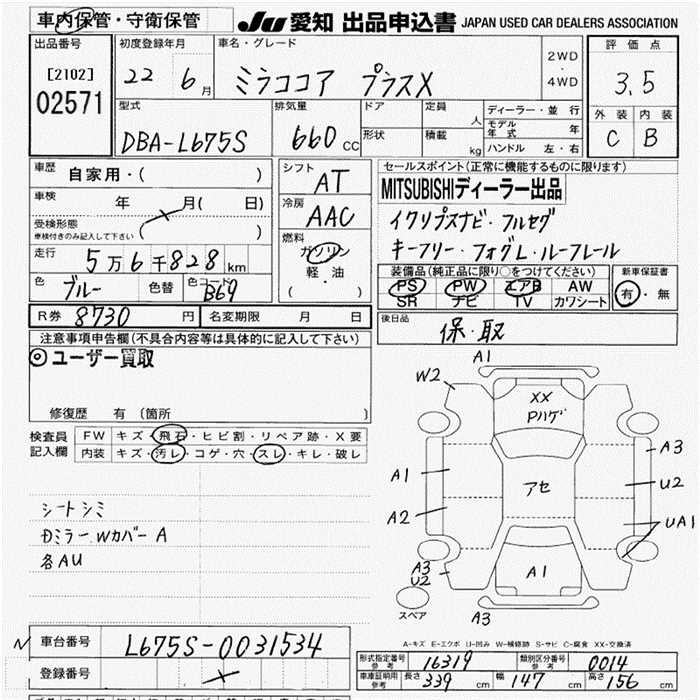 車内保管・守衛保管 JU 愛知 出品申込書 JAPAN USED CAR DEALERS ASSOCIATION
出品番号 [2102] 02571
初度登録年月 22 6月
車名・グレード ミラココア プラスX
2WD・4WD
評価点 3.5
外装 C 内装 B
型式 DBA-L675S
排気量 660cc
ドア 形状
定員 人 積載 kg
ディーラー・並行
モデル年式 年
ハンドル 左・右
車歴 自家用・( )
車検 年 月( 日)
受検形態 車検付きのみ記入して下さい ( )
走行 5万6千828km
色 ブルー 色替 色コード B69
シフト AT
冷房 AAC
燃料 ガソリン 軽・油 ( ・ )
セールスポイント(正常に機能するものに限ります)
MITSUBISHIディーラー出品
イクリプスナビ・フルセグ
キーフリー・フォグL・ルーフレール
装備品(純正品に限り○をつけてください)
PS PW エアB AW
SR ナビ TV カワシート
新車保証書 有・無
R券 8730円 名変期限 月 日
後日品 保・取
注意事項申告欄(不具合内容等は具体的に記入して下さい)
◎ユーザー買取
修復歴 有 〔箇所 〕
検査員記入欄
FW キズ・飛石・ヒビ割・リペア跡・X要
内装 キズ・汚レ・コゲ・穴・スレ・キレ・破レ
シートシミ
Dミラー.Wカバー A
各AU
A1
W2
XX
Pハゲ
A3
A1
アセ
U2
A2
UA1
A3
U2
A1
スペア
A3
A-キズ E-エクボ U-凹み W-補修跡 S-サビ C-腐食 XX-交換済
N 車台番号 L675S-0031534
登録番号
形式指定番号 参考 16319 類別区分番号 参考 0014
車庫証明用 参考 長さ 339cm 幅 147cm 高さ 156cm